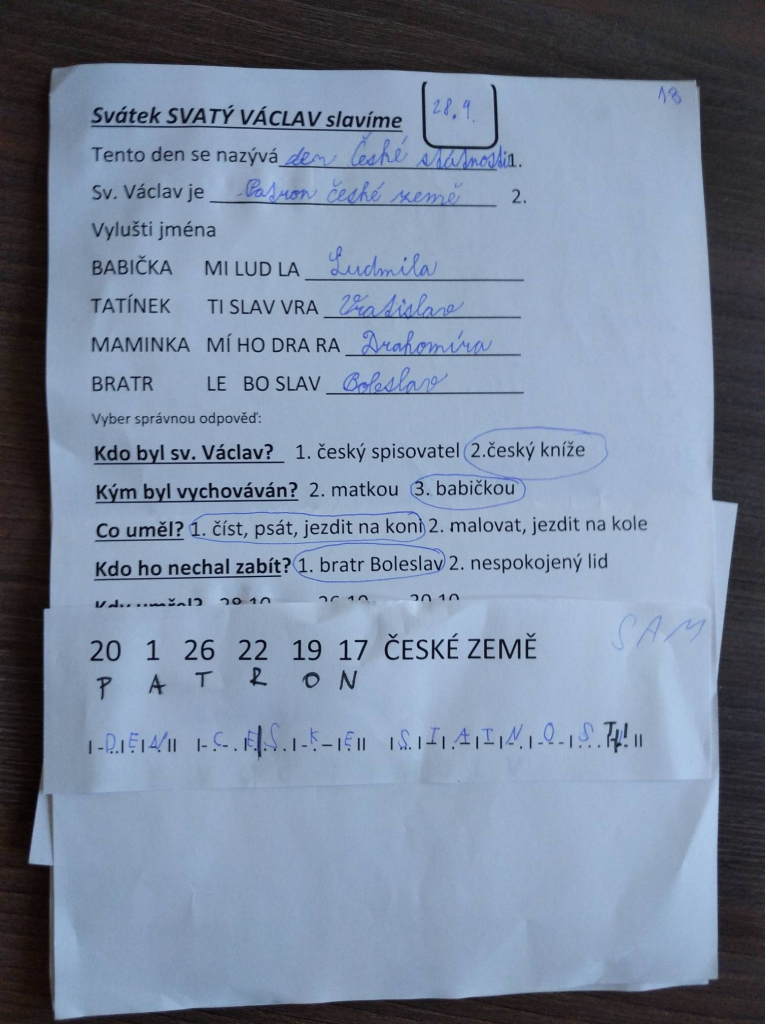 18
Svátek SVATÝ VÁCLAV slavíme 28.9.
Tento den se nazývá den České státnosti 1.
Sv. Václav je Patron české země 2.
Vylušti jména
BABIČKA MI LUD LA Ludmila
TATÍNEK TI SLAV VRA Vratislav
MAMINKA MÍ HO DRA RA Drahomíra
BRATR LE BO SLAV Boleslav
Vyber správnou odpověď:
Kdo byl sv. Václav? 1. český spisovatel 2.český kníže
Kým byl vychováván? 2. matkou 3. babičkou
Co uměl? 1. číst, psát, jezdit na koni 2. malovat, jezdit na kole
Kdo ho nechal zabít? 1. bratr Boleslav 2. nespokojený lid
Kdy umřel? 28.10. 26.10. 20.10.
SAM
20 1 26 22 19 17 ČESKÉ ZEMĚ
P A T R O N
DEN ČESKÉ STATNOSTI